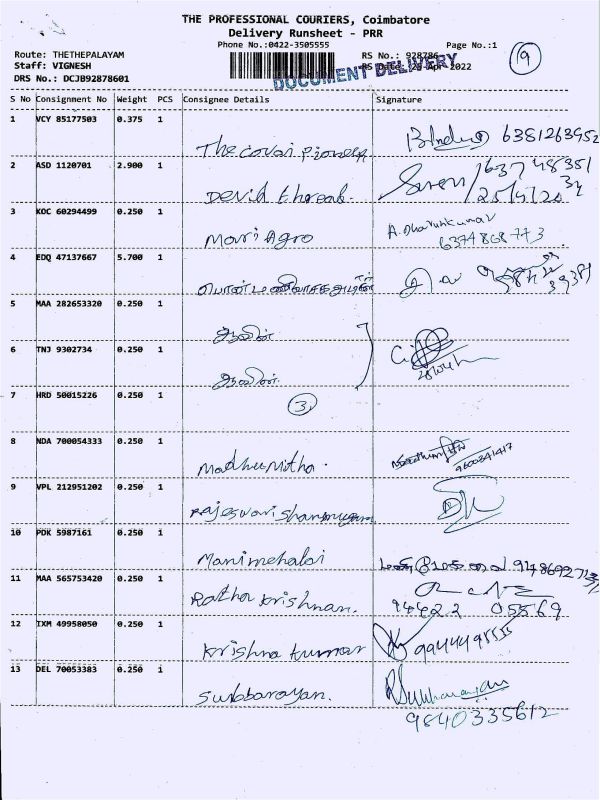 THE PROFESSIONAL COURIERS, Coimbatore
Delivery Runsheet - PRR
Phone No.:0422-3505555
Page No.:1
9
Route: THETHEPALAYAM
RS No.: 928786
Staff: VIGNESH
RS Date: 25-Apr-2022
DOCUMENT DELIVERY
DRS No.: DCJB92878601
S No Consignment No Weight PCS Consignee Details Signature
1 VCY 85177503 0.375 1
The covai pioneer 6381263952
2 ASD 1120701 2.900 1
Devid
3 KOC 60294499 0.250 1
Mari Agro A. Dharunkumar
6374868773
4 EDQ 47137667 5.700 1
5 MAA 282653320 0.250 1
6 TNJ 9302734 0.250 1
7 HRD 50015226 0.250 1
3
8 NDA 700054333 0.250 1
Madhumitha. 9600341417
9 VPL 212951202 0.250 1
Rajeswari Shanmugam
10 PDK 5987161 0.250 1
Manimehalai
11 MAA 565753420 0.250 1
Ratha krishnan.
94422 05569
12 IXM 49958050 0.250 1
krishna kumar
13 DEL 70053383 0.250 1
Subbarayan. R Subbarayan
9840335612